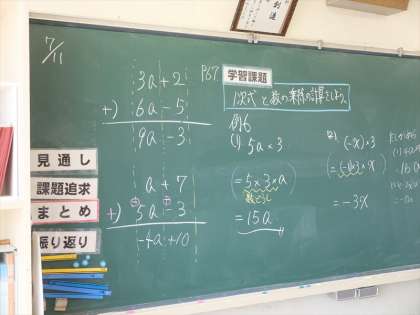 7/11
3a+2
+) 6a-5
9a-3
a+7
+) 5a-3
-4a+10
見通し
課題追求
まとめ
振り返り
P67
学習課題
1次式と数の乗除の計算をしよう。
例6
(1) 5a×3
=5×3×a
数どうし
=15a
(-x)×3
=(-1)×3×x
=-3x